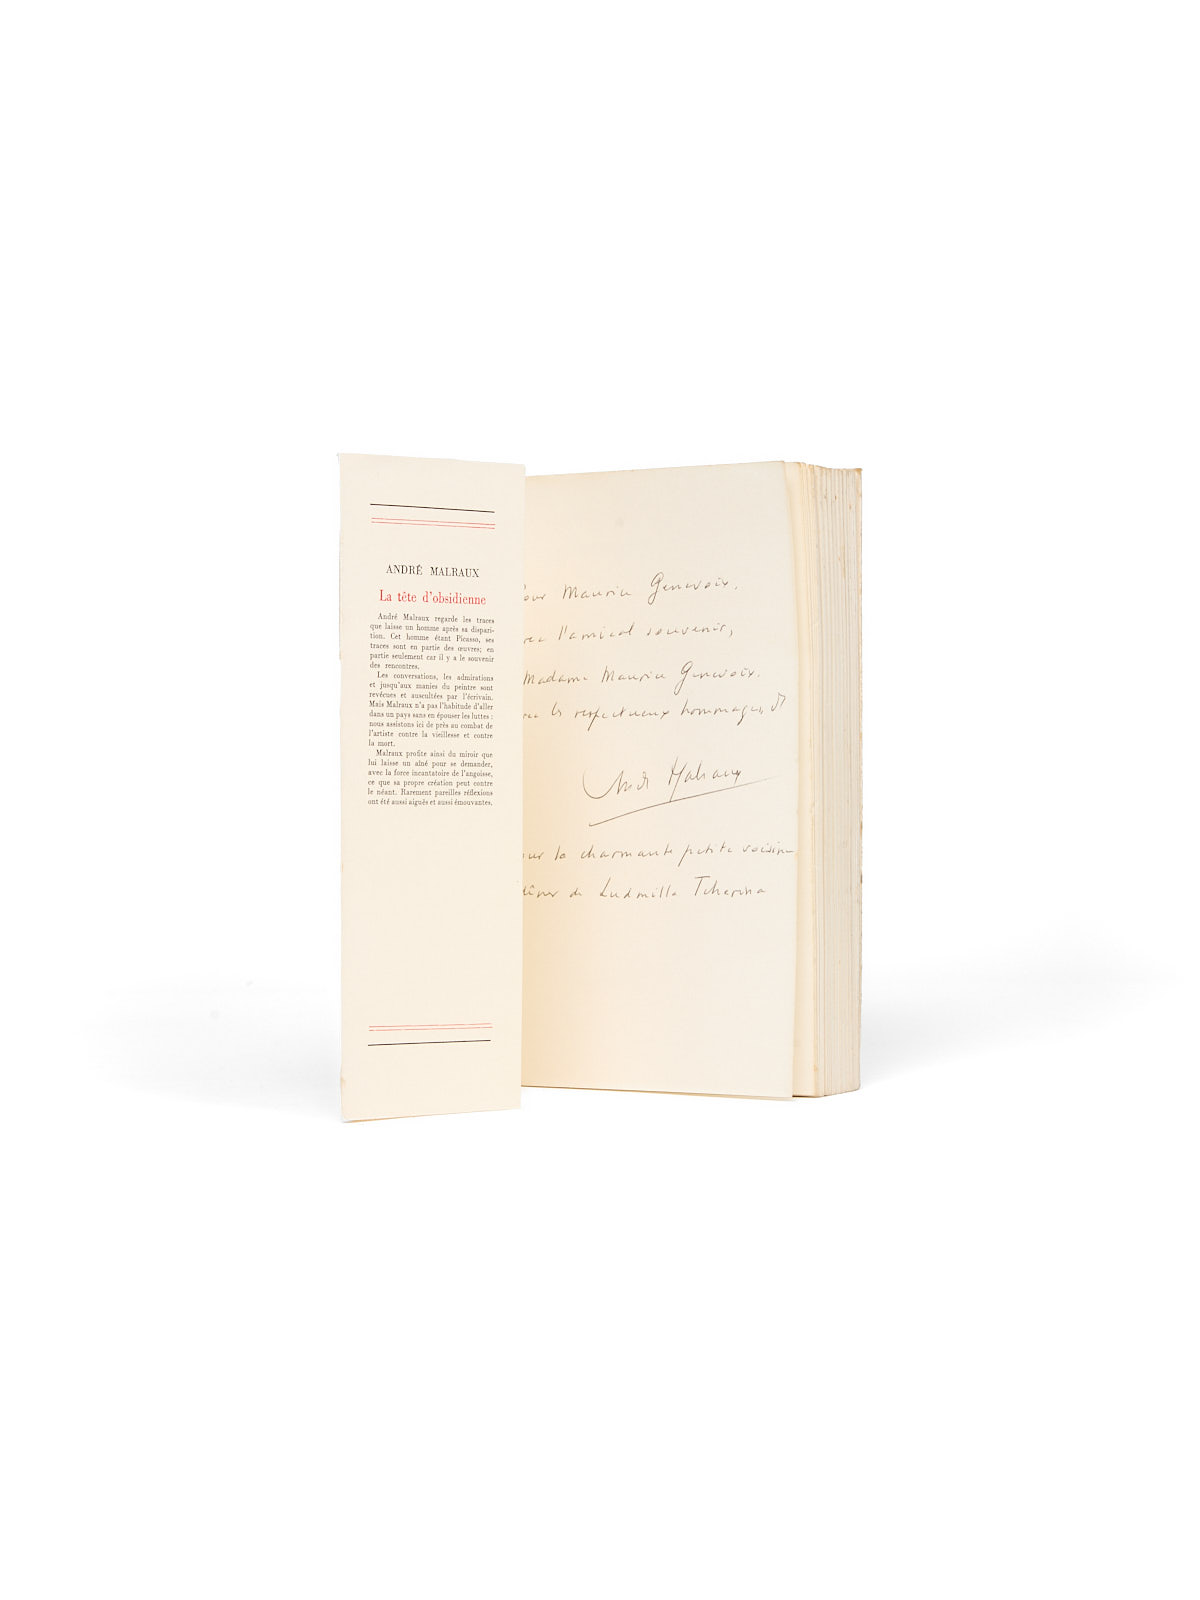 ANDRÉ MALRAUX
La tête d'obsidienne
André Malraux regarde les traces
que laisse un homme après sa dispari-
tion. Cet homme étant Picasso, ses
traces sont en partie des œuvres; en
partie seulement car il y a le souvenir
des rencontres.
Les conversations, les admirations
et jusqu'aux manies du peintre sont
revécues et auscultées par l'écrivain.
Mais Malraux n'a pas l'habitude d'aller
dans un pays sans en épouser les luttes :
nous assistons ici de près au combat de
l'artiste contre la vieillesse et contre
la mort.
Malraux profite ainsi du miroir que
lui laisse un aîné pour se demander,
avec la force incantatoire de l'angoisse,
ce que sa propre création peut contre
le néant. Rarement pareilles réflexions
ont été aussi aiguës et aussi émouvantes.
our Maurice Genevoix,
vec l'amical souvenir,
Madame Maurice Genevoix,
vec les respectueux hommages, d
André Malraux
our la charmante petite voisine
dîner de Ludmilla Tcherina